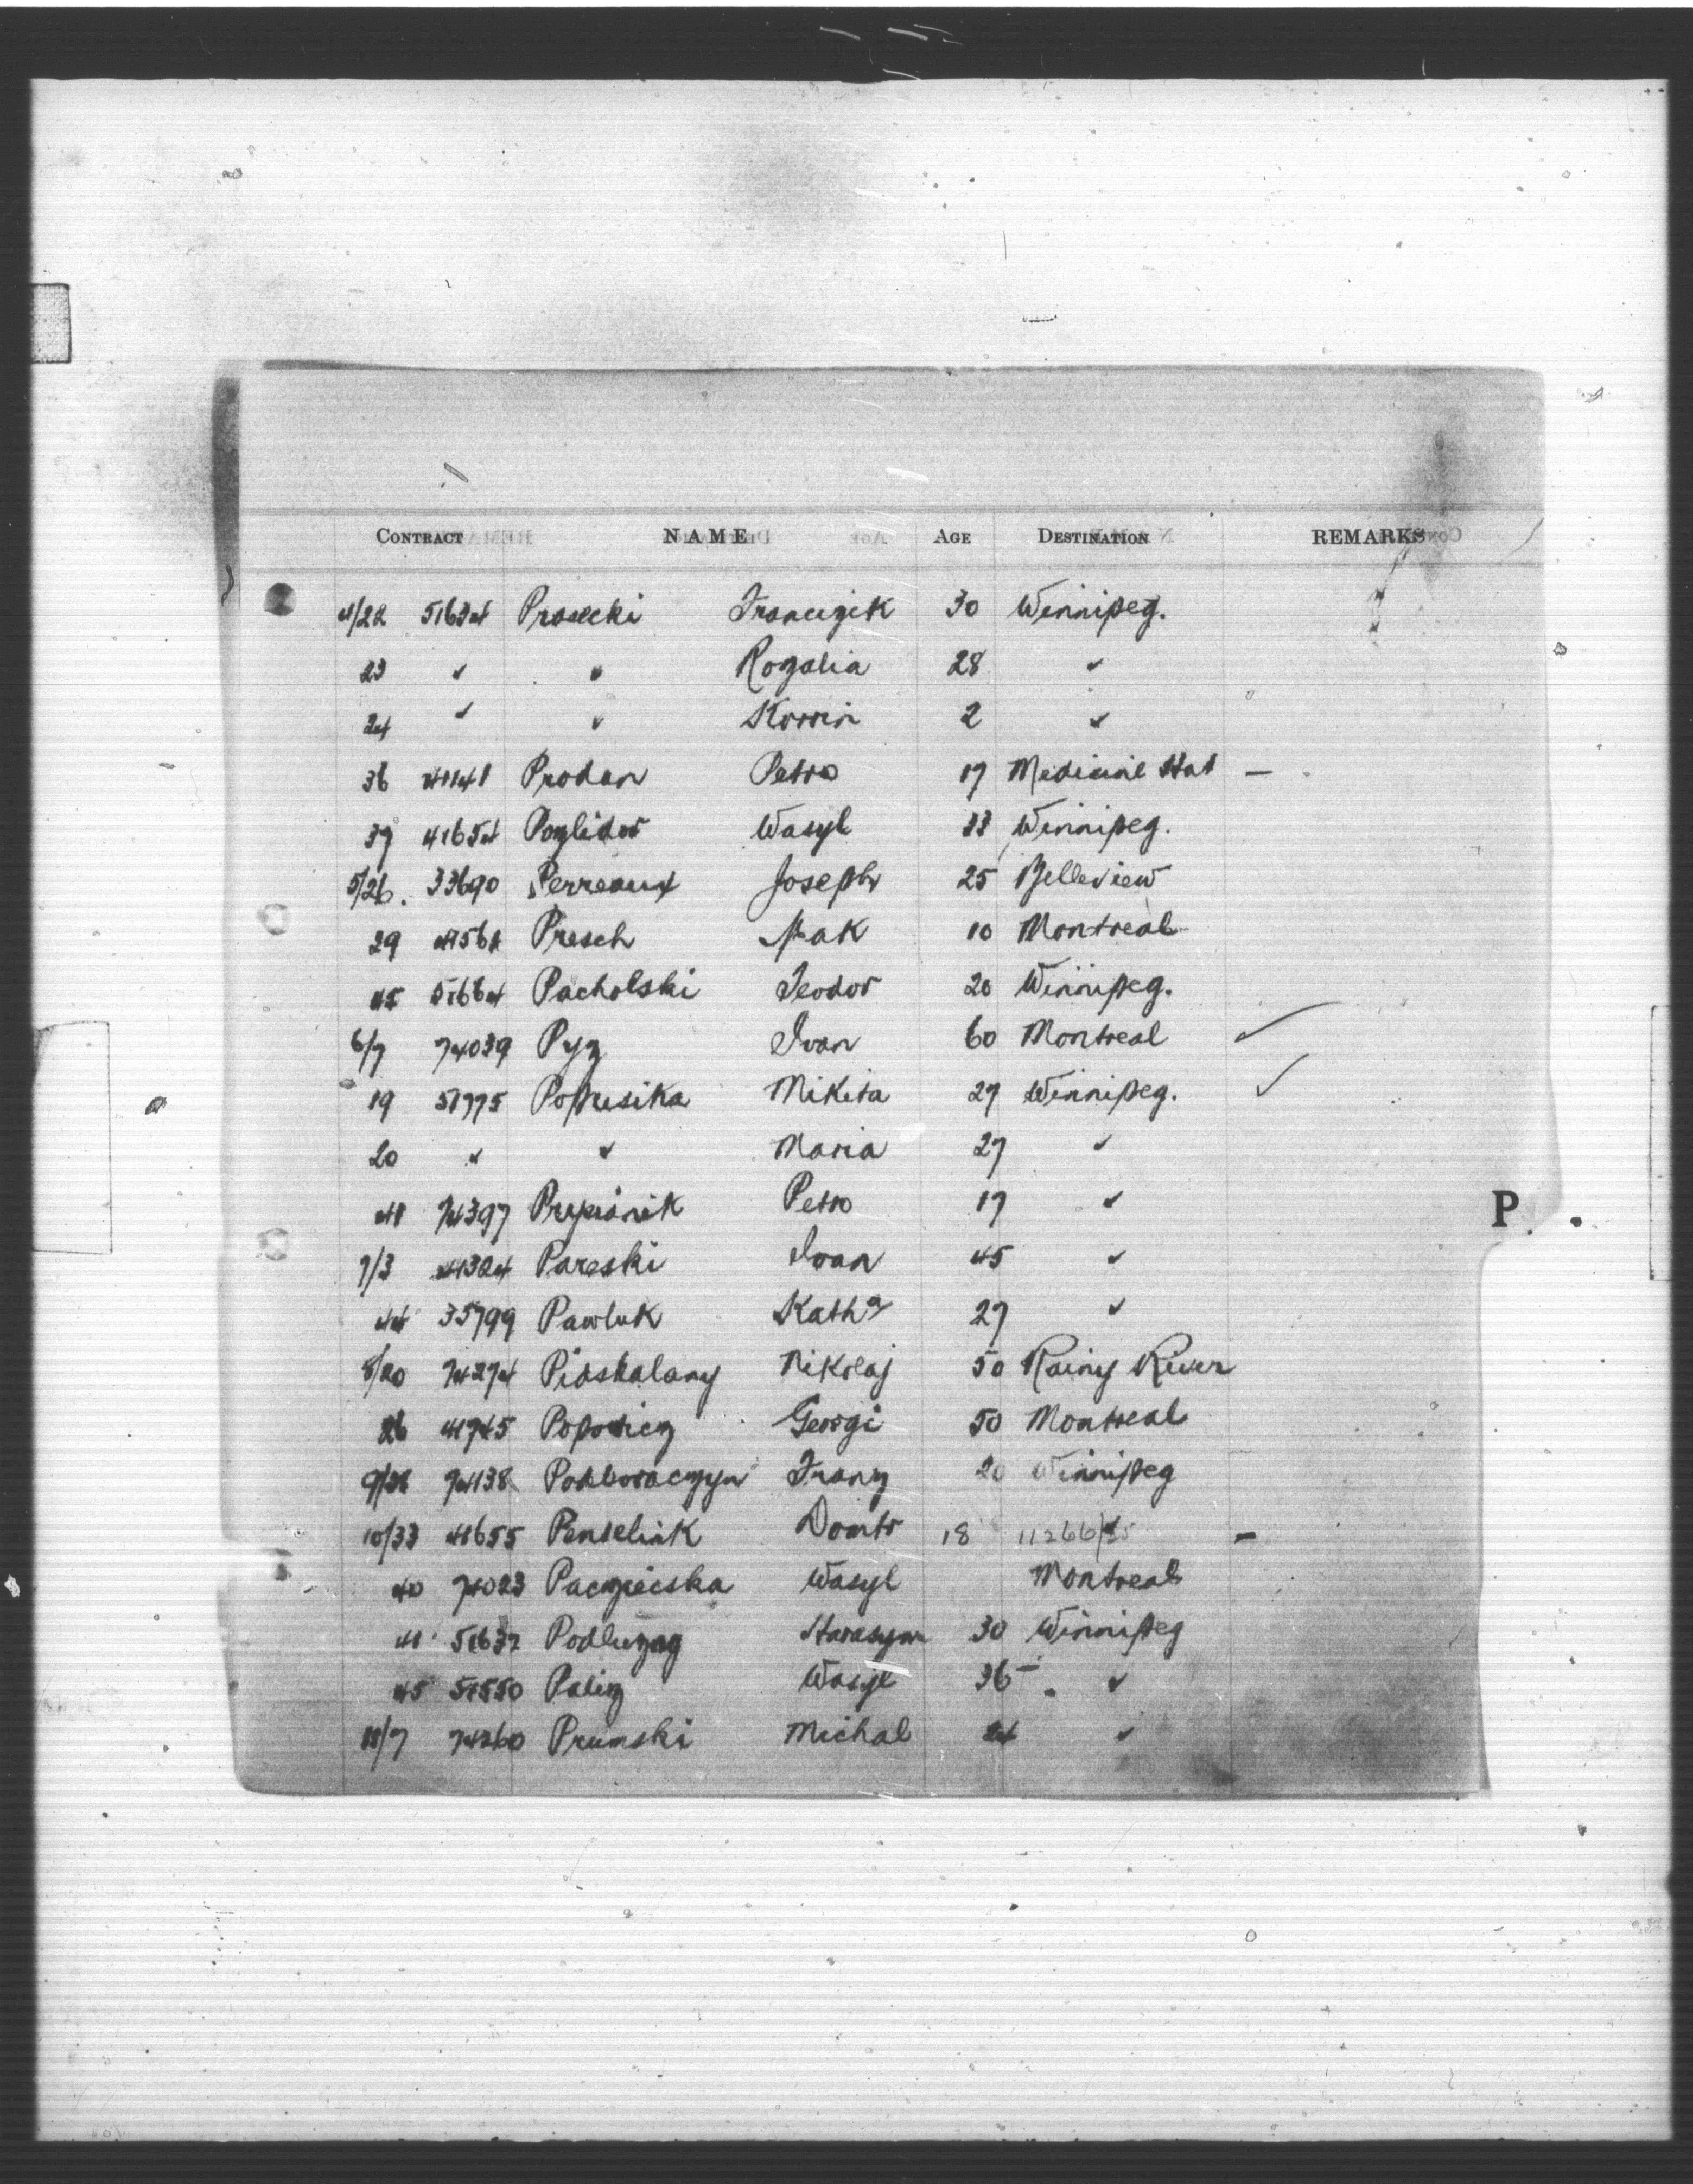 CONTRACT NAME AGE DESTINATION REMARKS
4/22 51634 Prosecki Francizek 30 Winnipeg.
23 " " Rozalia 28 "
24 " " 2 "
36 41141 Prodan Petro 17 Medicine Hat —
37 41654 Wasyl 33 Winnipeg.
5/26. 33690 Perreaux Joseph 25 Belleview
29 Presch 10 Montreal
45 51664 Pacholski Teodor 20 Winnipeg.
6/7 74039 Pyz Ivan 60 Montreal ✓
19 51775 Mikita 27 Winnipeg. ✓
20 " " Maria 27 "
41 74397 Petro 17 "
7/3 41324 Pareski Ivan 45 "
44 35799 Pawluk Kath a 27 "
8/20 74274 Pidskalany Nikolaj 50 Rainy River
26 41745 Popowicz Georgi 50 Montreal
74138 Franz 20 Winnipeg
10/33 41655 Penselink 18 —
40 74023 Wasyl Montreal
41 51637 Harasym 30 Winnipeg
45 51550 Paliz Wasyl 36 "
11/7 74260 Prumski Michal 24 "
P